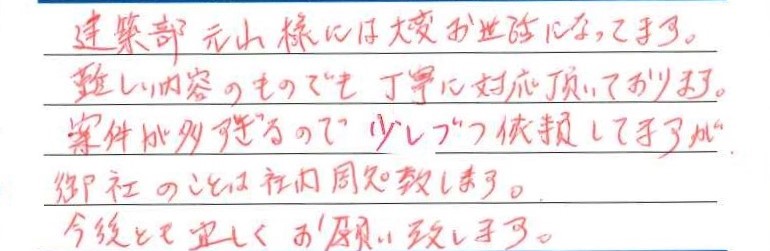 建築部 元山様には大変お世話になってます。
難しい内容のものでも 丁寧に対応頂いております。
案件が多すぎるので 少しづつ依頼してますが
御社のことは社内周知致します。
今後とも宜しくお願い致します。